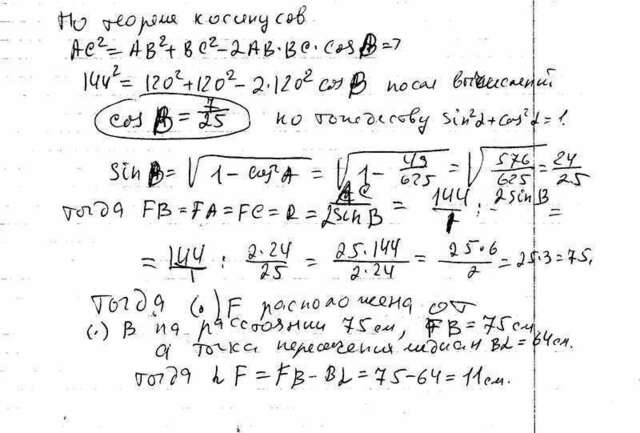 По теореме косинусов
AC² = AB² + BC² − 2AB·BC·cos B ⇒
144² = 120² + 120² − 2·120² cos B после вычислений
cos B = 7/25 по тождеству sin²α + cos²α = 1.
Sin B = √(1 − cos²A) = √(1 − 49/625) = √(576/625) = 24/25
тогда FB = FA = FC = R = AC/2sin B = 144/1 : 2sin B =
= 144/1 : 2·24/25 = 25·144/2·24 = 25·6/2 = 25·3 = 75.
Тогда (·) F расположена от
(·) B на расстоянии 75 см, FB = 75 см
а точка пересечения медиан BL = 64 см.
тогда LF = FB − BL = 75 − 64 = 11 см.